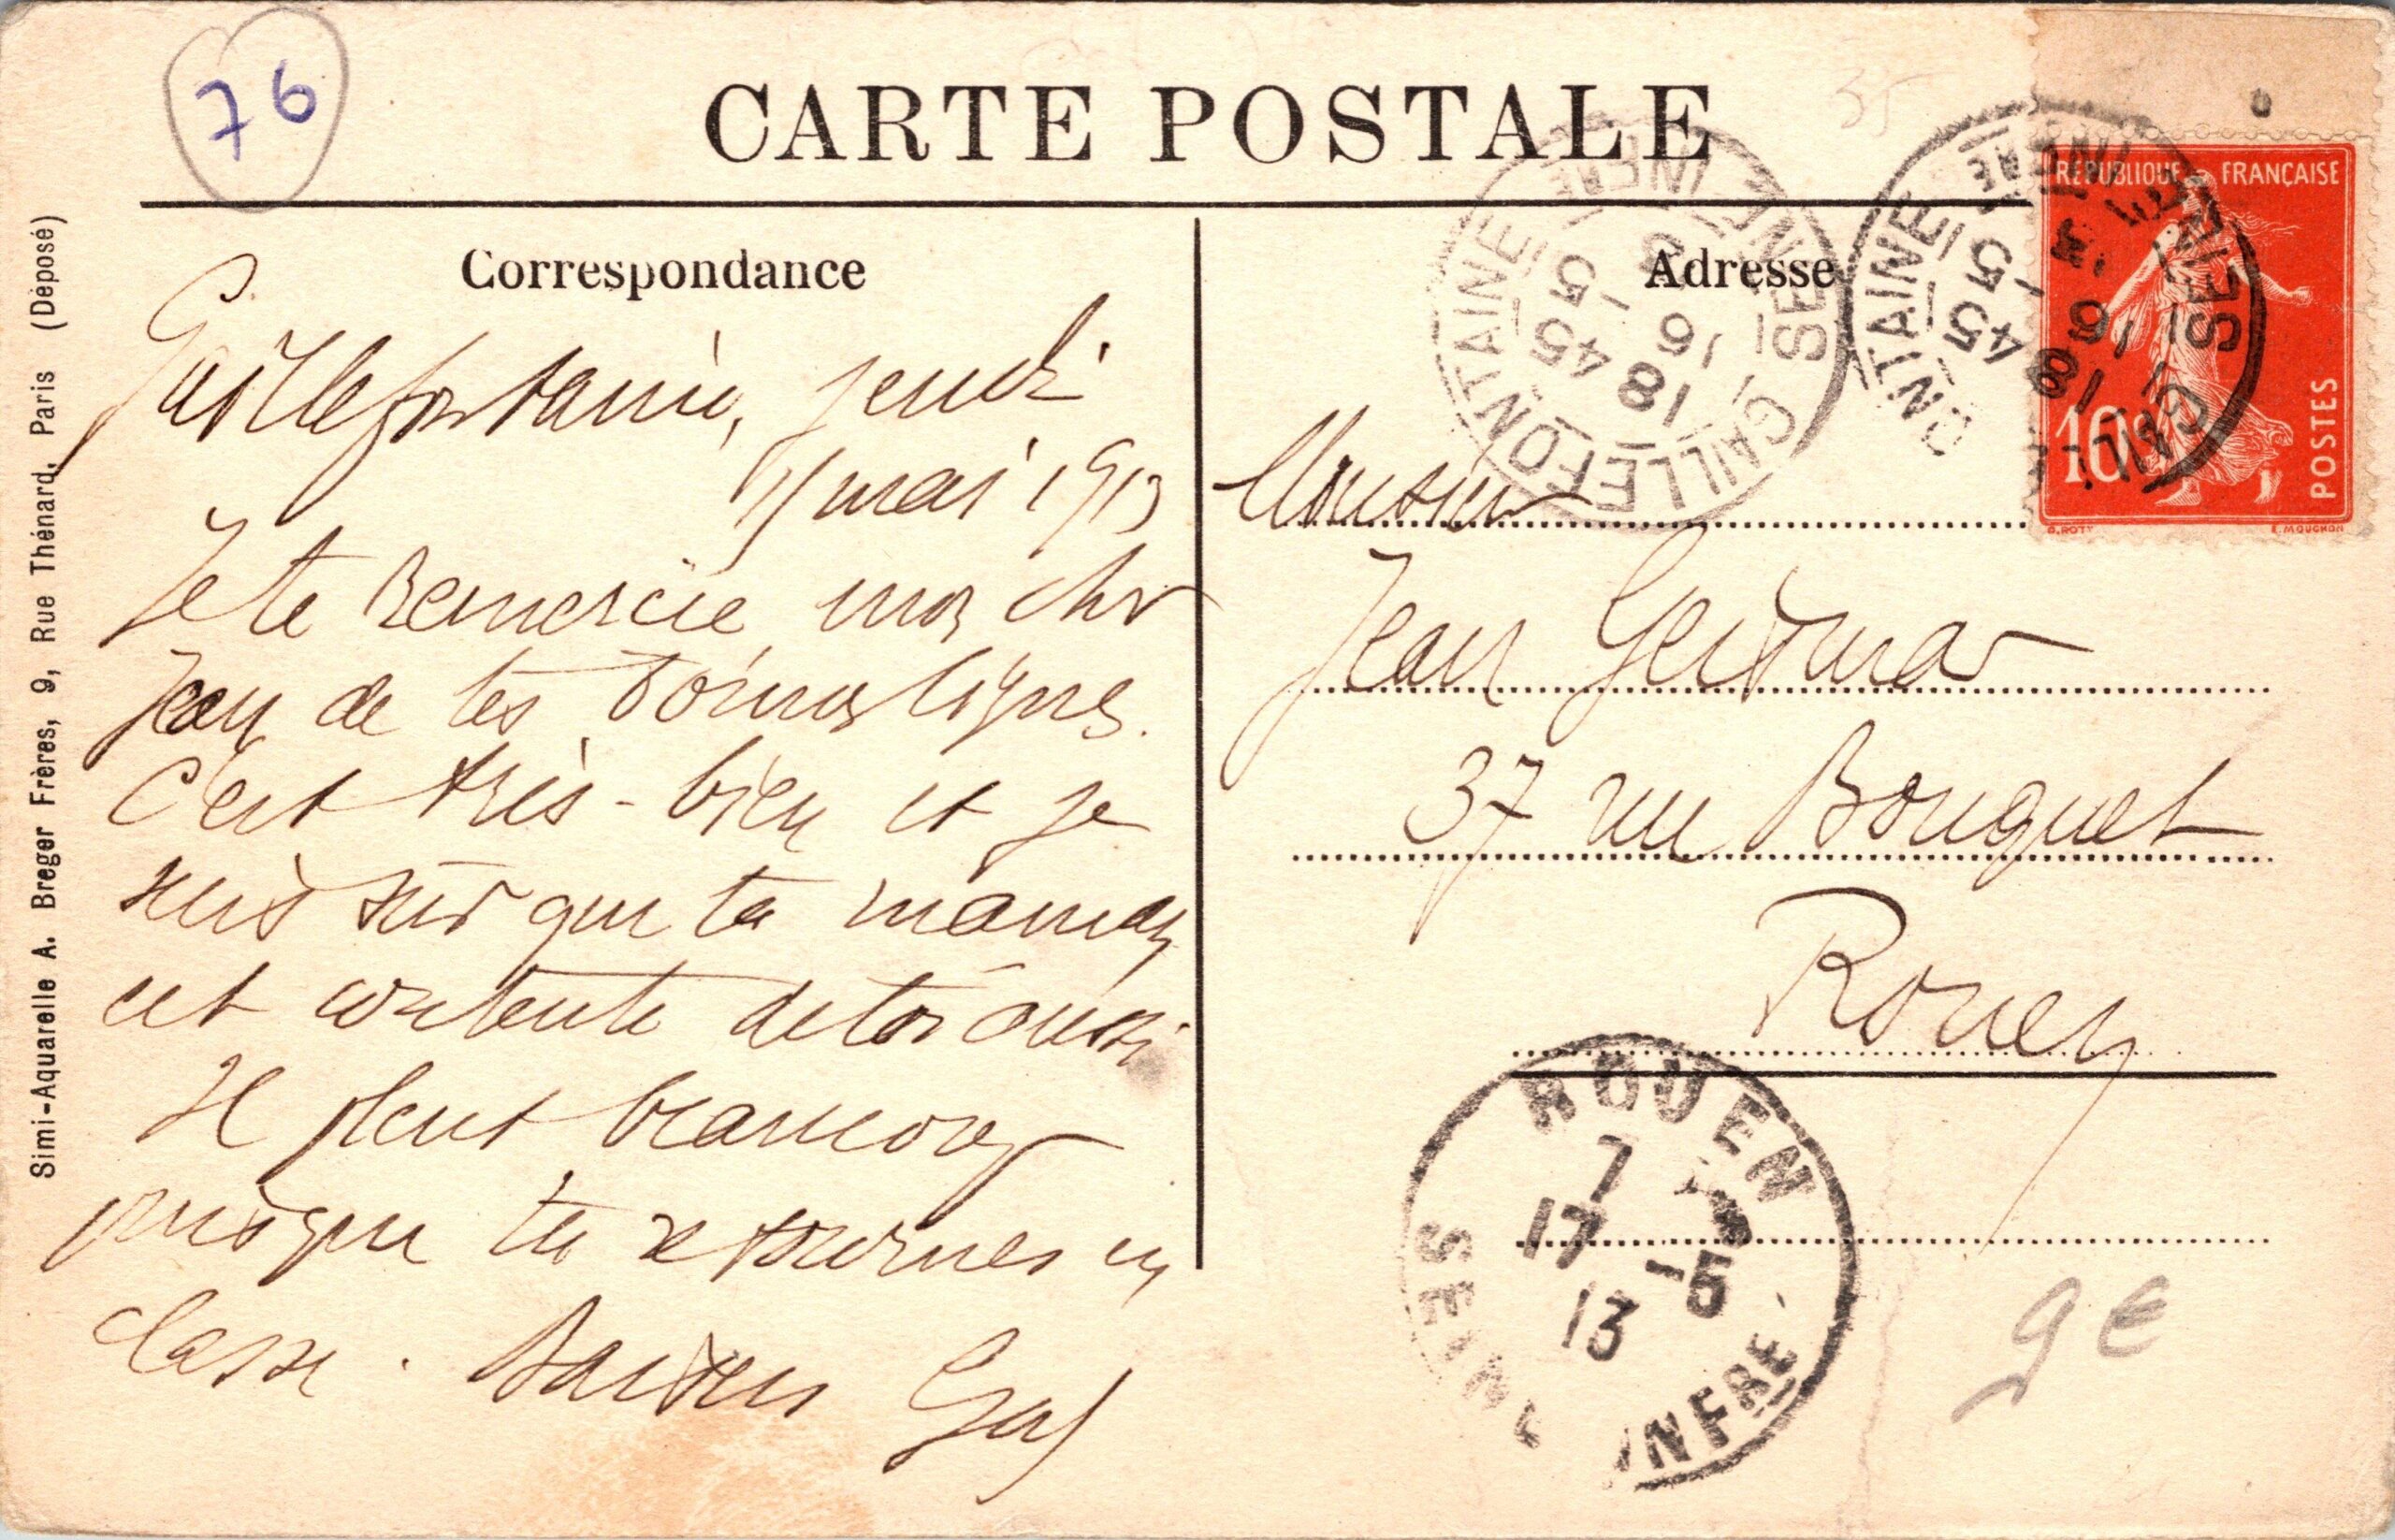 76
CARTE POSTALE
Correspondance
Adresse
RÉPUBLIQUE FRANÇAISE
POSTES
10c
O. ROTY
E. MOUCHON
GAILLEFONTAINE SEINE INFRE
18 45
16 5
GAILLEFONTAINE SEINE INFRE
18 45
16 5
Gaillefontaine, jeudi
mai 1913
Je te remercie mon cher
Jean de tes bonnes lignes.
C'est très-bien et je
suis sûr que ta maman
est contente de toi aussi
Il pleut beaucoup
puisque tu retournes en
classe. Baisers
Monsieur
Jean
37 rue Bouquet
Rouen
ROUEN
7
17 -5
13
SEINE INFRE
9€
Simi-Aquarelle A. Breger Frères, 9, Rue Thénard, Paris (Déposé)